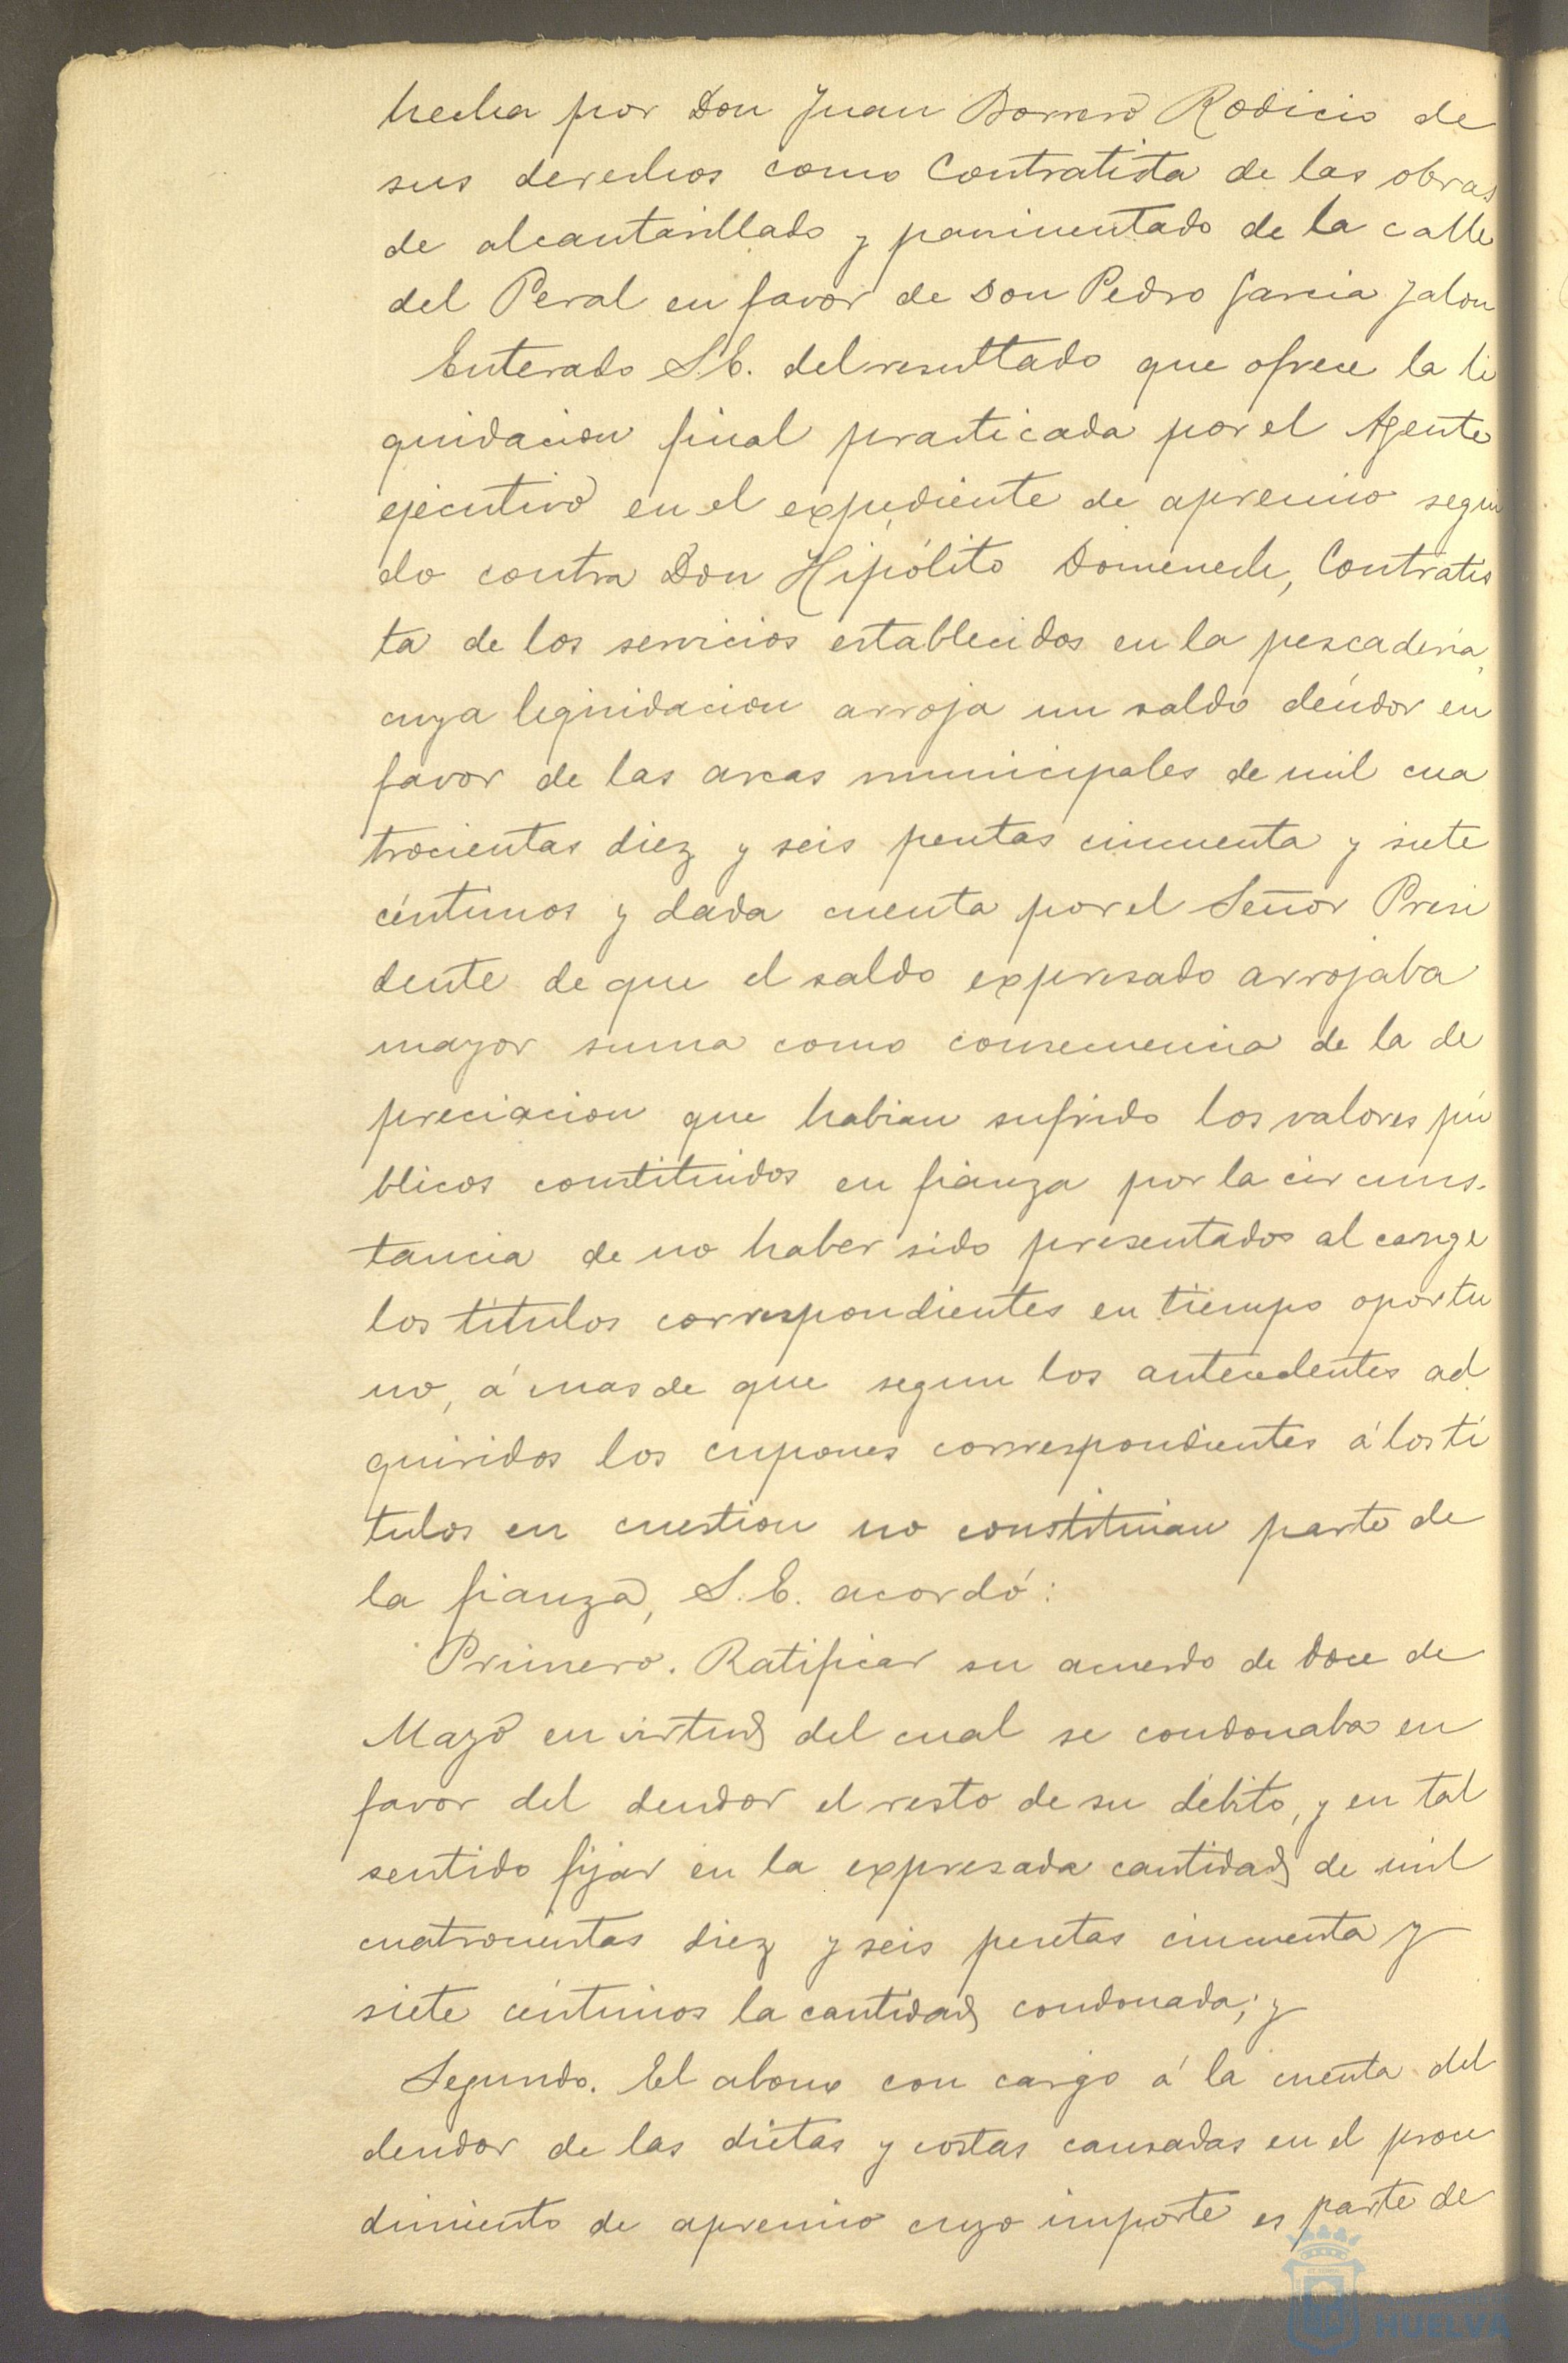 hecha por Don Juan Borrero Rodicio de
sus derechos como Contratista de las obras
de alcantarillado y pavimentado de la calle
del Peral en favor de Don Pedro Garcia Jalon
Enterado S.E. del resultado que ofrece la li
quidacion final practicada por el Agente
ejecutivo en el expediente de apremio segui
do contra Don Hipólito Domenech, Contratis
ta de los servicios establecidos en la pescaderia,
cuya liquidacion arroja un saldo deudor en
favor de las arcas municipales de mil cua
trocientas diez y seis pesetas cincuenta y siete
céntimos y dada cuenta por el Señor Presi
dente de que el saldo expresado arrojaba
mayor suma como consecuencia de la de
preciacion que habian sufrido los valores pú
blicos constituidos en fianza por la circuns-
tancia de no haber sido presentados al cange
los títulos correspondientes en tiempo oportu
no, á mas de que segun los antecedentes ad
quiridos los cupones correspondientes á los tí
tulos en cuestion no constituian parte de
la fianza, S.E. acordó:
Primero. Ratificar su acuerdo de doce de
Mayo en virtud del cual se condonaba en
favor del deudor el resto de su débito, y en tal
sentido fijar en la expresada cantidad de mil
cuatrocientas diez y seis pesetas cincuenta y
siete céntimos la cantidad condonada; y
Segundo. El abono con cargo á la cuenta del
deudor de las dietas y costas causadas en el proce
dimiento de apremio cuyo importe es parte de
HUELVA